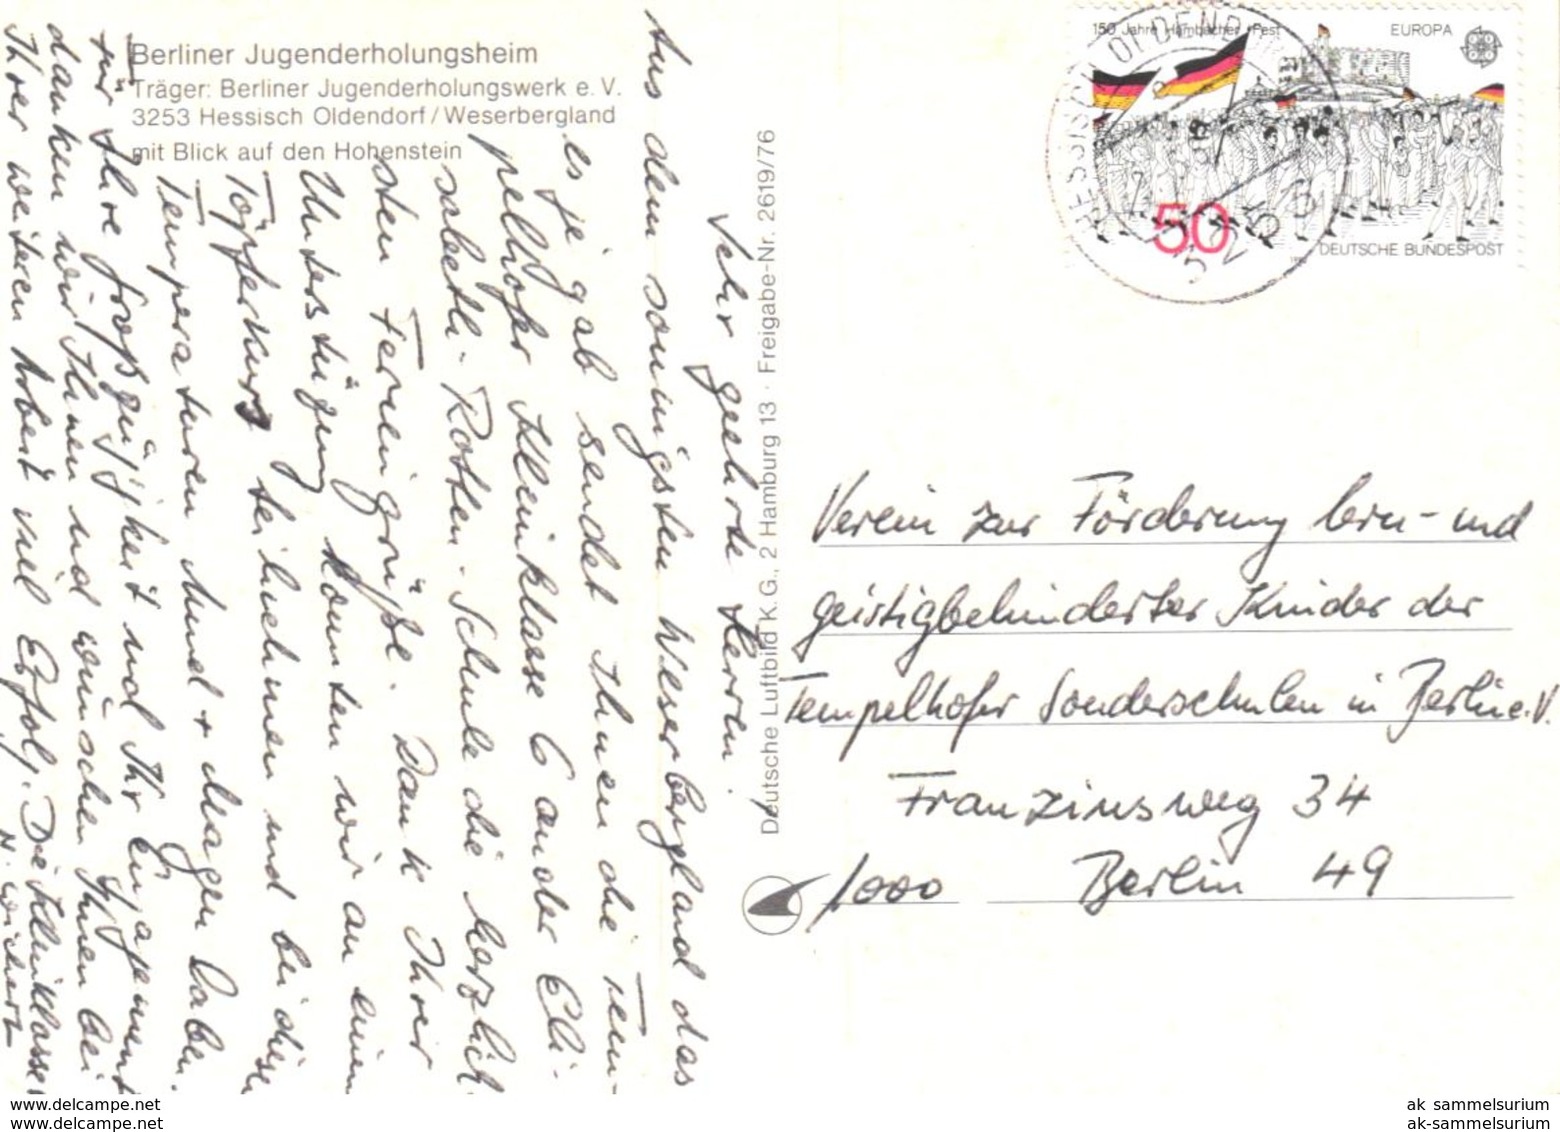 Berliner Jugenderholungsheim
Träger: Berliner Jugenderholungswerk e. V.
3253 Hessisch Oldendorf / Weserbergland
mit Blick auf den Hohenstein
Sehr geehrte Herren!
Aus dem sonnigsten Weserbergland das
es je gab sendet Ihnen die Tem-
pelhofer Kleinklasse 6 an der Eli-
sabeth-Rotten-Schule die herzlich-
sten Feriengrüße. Dank Ihrer
Unterstützung konnten wir an einem
Töpferkurs teilnehmen und bei diesen
Temperaturen Mund + Magen laben.
Für Ihre Großzügigkeit und Ihr Engagement
danken wir Ihnen und wünschen Ihnen bei
Ihrer weiteren Arbeit viel Erfolg. Die Kleinklasse
Deutsche Luftbild K.G., 2 Hamburg 13 · Freigabe-Nr. 2619/76
150 Jahre Hambacher Fest
EUROPA
50
DEUTSCHE BUNDESPOST
HESSISCH OLDENDORF
3253
Verein zur Förderung lern- und
geistigbehinderter Kinder der
Tempelhofer Sonderschulen in Berlin e.V.
Franziusweg 34
1000 Berlin 49
delcampe.net
delcampe.net
ak_sammelsurium
ak-sammelsurium